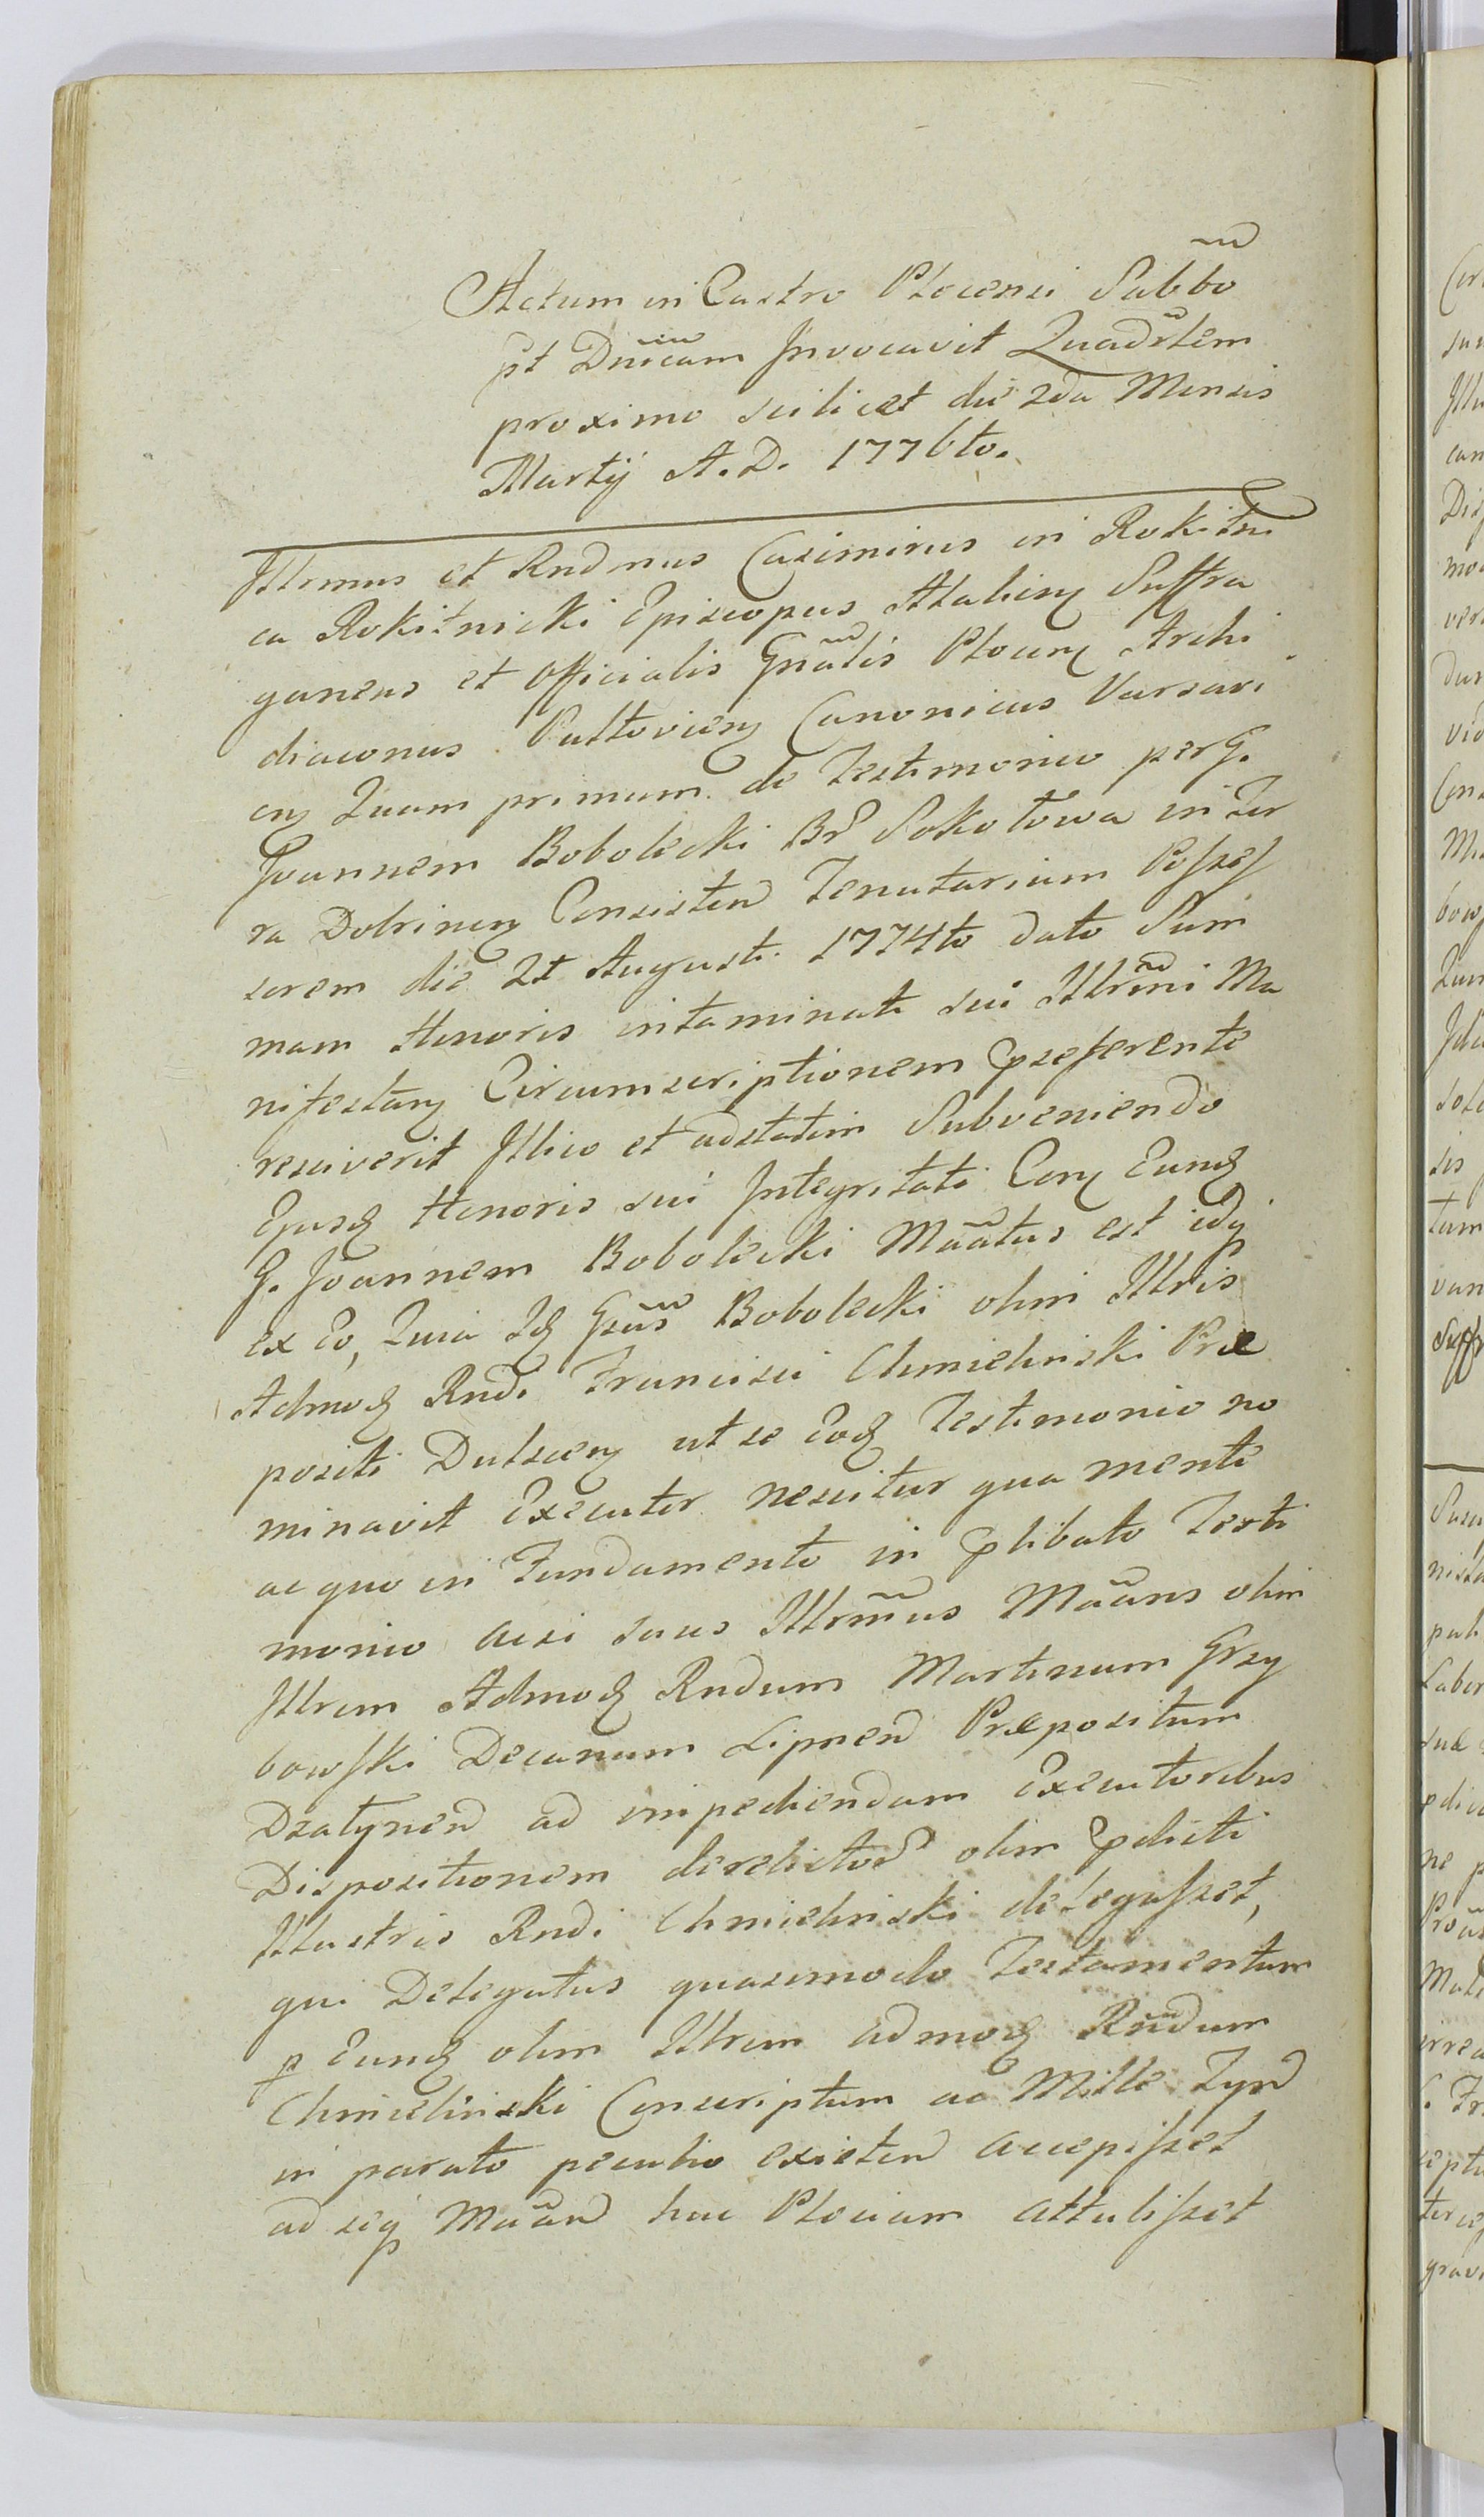 Actum in Castro Plocensi Sabbo
pt Dnicam Invocavit Quadrlem
proximo scilicet die 2da Mensis
Martij A. D. 1776to.
Illrmus et Rndmus Casimirus in Rokitni
ca Rokitnicki Episcopus Atalien Suffra
ganeus et Officialis Gnalis Plocen Archi
diaconus Pultovien Canonicus Varsavi
en Quam primum de Testimonio per G.
Joannem Bobolecki Br Sokołowa in Ter
ra Dobrinen Consisten Tenutarium Posses
sorem die 21 Augusti 1774to dato Sum
mam Honoris intaminati sui Illrmi Ma
nifestan Circumscriptionem præferente
resciverit Illico et adstatim Subveniendo
Ejusq Honoris sui Integritati Con Eunq
G. Joannem Bobolecki Maatus est idq
ex eo, Quia Iq Gsus Bobolecki olim Illris
Admoq Rndi Francisci Chmielinski Præ
positi Dulscen ut se eoq Testimonio no
minavit Executor nescitur qua mente
ac quo in Fundamento in plibato Testi
monio acsi suus Illrmus Maans olim
Illrem Admoq Rndum Martinum Grzy
bowski Decanum Lipnen Præpositum
Dzatynen ad impediendam Executoribus
Dispositionem derelictor olim pdicti
Illustris Rndi Chmielinski delegasset,
qui Delegatus quasimodo Testamentum
p Eunq olim Illrem admoq Rndum
Chmielinski Conscriptum ac Mille Tyn
in parato peculio existen accepisset
ad seq Maan huc Plociam attulisset